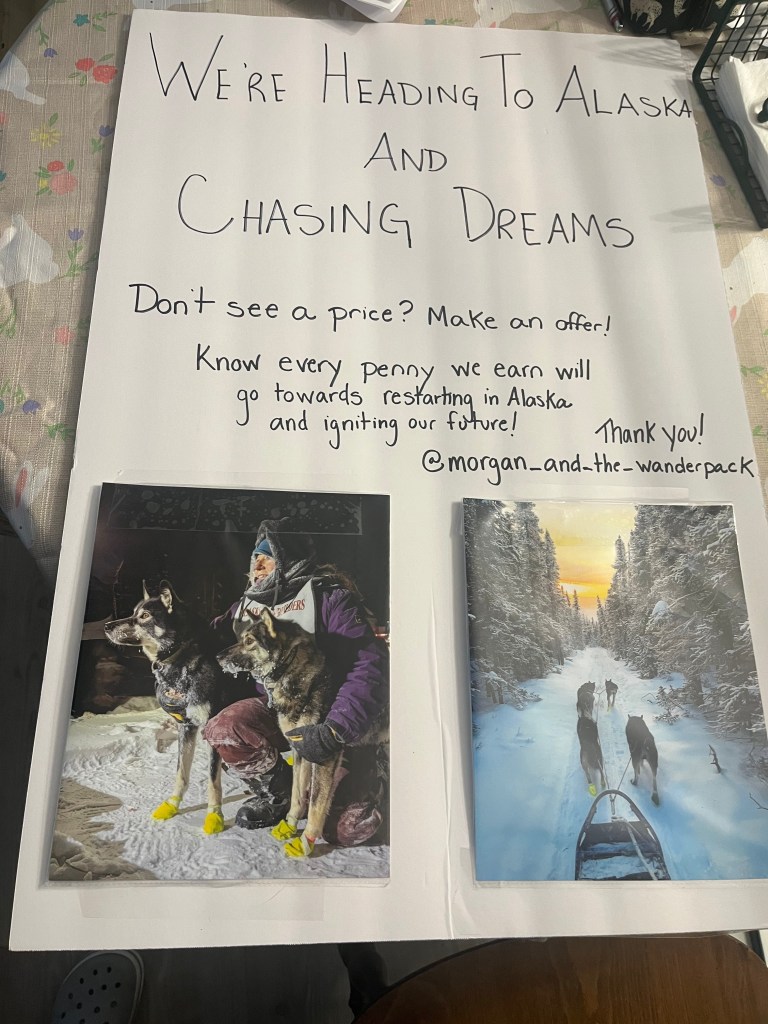 WE'RE HEADING TO ALASKA
AND
CHASING DREAMS
Don't see a price? Make an offer!
Know every penny we earn will
go towards restarting in Alaska
and igniting our future!
Thank you!
@morgan_and-the-wanderpack